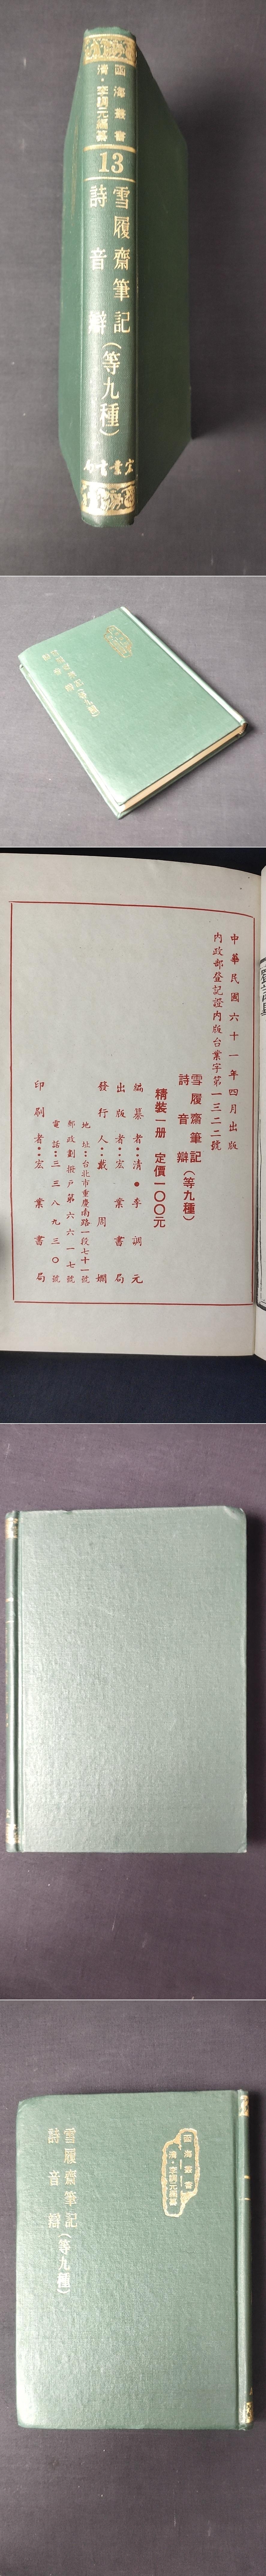 函海叢書
清·李調元編纂
13
雪履齋筆記
詩音辯
(等九種)
宏業書局
中華民國六十一年四月出版
內政部登記證內版台業字第一三二二號
雪履齋筆記
詩音辯
(等九種)
精裝一册 定價一〇〇元
編纂者:清●李調元
出版者:宏業書局
發行人:戴周嫻
地址:台北市重慶南路一段七十一號
郵政劃撥戶第六六一七號
電話:三三八九三〇號
印刷者:宏業書局
函海叢書
清·李調元編纂
雪履齋筆記
詩音辯
(等九種)